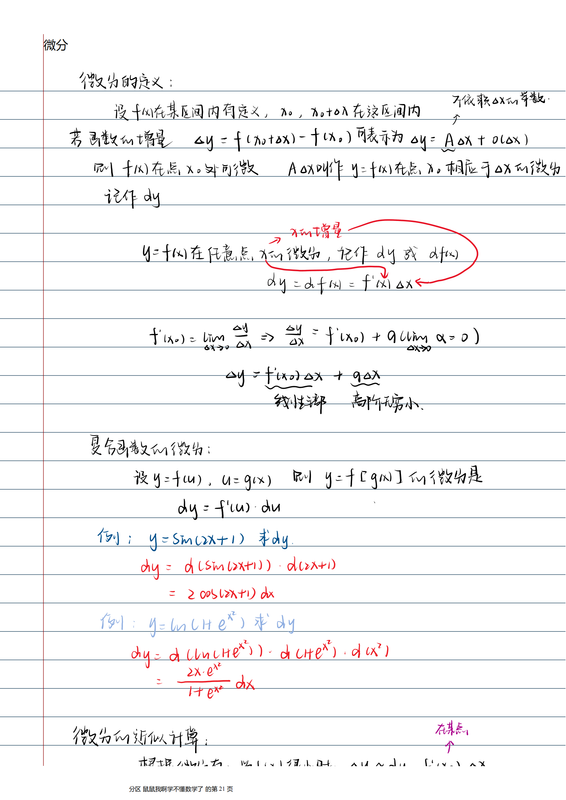 微分
微分的定义：
不依赖Δx的常数
设 f(x)在某区间内有定义，x₀，x₀+Δx 在这区间内
若函数的增量 Δy = f(x₀+Δx) - f(x₀) 可表示为 Δy = AΔx + o(Δx)
则 f(x)在点 x₀ 处可微 AΔx叫作 y=f(x)在点 x₀ 相应于Δx的微分
记作 dy
x的增量
y=f(x)在任意点x的微分，记作 dy 或 df(x)
dy = df(x) = f'(x)Δx
f'(x₀) = lim Δx→0 Δy/Δx ⇒ Δy/Δx = f'(x₀) + α (lim Δx→0 α = 0)
Δy = f'(x₀)Δx + αΔx
线性主部 高阶无穷小.
复合函数的微分：
设 y=f(u)，u=g(x) 则 y=f[g(x)] 的微分是
dy = f'(u)·du
例：y=sin(2x+1) 求dy.
dy = d(sin(2x+1))·d(2x+1)
= 2cos(2x+1)dx
例：y=ln(1+e^x²) 求dy
dy = d(ln(1+e^x²))·d(1+e^x²)·d(x²)
= 2x·e^x² / 1+e^x² dx
在某点
微分的近似计算：
分区 鼠鼠我啊学不懂数学了 的第 21 页